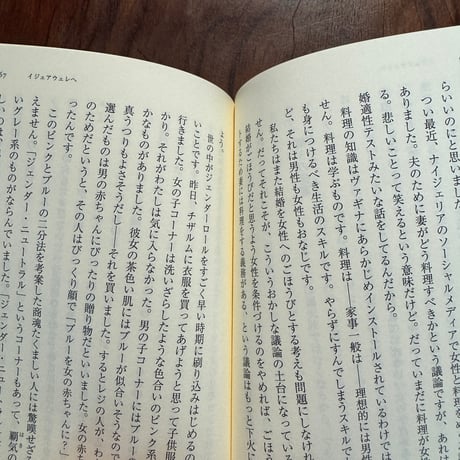 らいいのにと思いま
つい最近、ナイジェリアのソーシャルメディアで女性と料理を
ありました。夫のために妻がどう料理すべきかという議論ですが、あれは
る。悲しいことって笑えるという意味だけど。だっていまだに料理が女
婚適性テストみたいな話をしてるんだから。
料理の知識はヴァギナにあらかじめインストールされているわけでは
せん。料理は学ぶものです。料理は――家事一般は――理想的には男
も身につけるべき生活のスキルです。やらずにすんでしまうスキルで
ど、それは男性も女性もおなじです。
私たちはまた結婚を女性へのごほうびとする考えも問題にしなけれ
せん。だってそれこそが、こういうおかしな議論の土台になってい
結婚がごほうびだと思うよう女性を条件づけるのをやめれば、ごほ
とするため妻には料理をする義務がある、という議論はもっと下火に
ょう。
67 イジェアウェレへ
世の中がジェンダーロールをすごく早い時期に刷り込みはじめるの
いことです。昨日、チザルムに衣服を買ってあげようと思って子供服
行きました。女の子コーナーは洗いざらしたような色合いのピンク系
かり。それがわたしは気に入らなかった。男の子コーナーには
かなものがありました。彼女の茶色い肌にはブルーが似合いそうなので
真うつりもよさそうだし――それを買いました。するとレジの人が、わ
選んだものは男の赤ちゃんにぴったりの贈り物だといいました。女の赤
のためだというと、その人はびっくり顔で「ブルーを女の赤ちゃんに?
ったんです。
このピンクとブルーの二分法を考案した商魂たくましい人には驚嘆せざ
えません。「ジェンダー・ニュートラル」というコーナーもあって、覇気
いグレー系のものがならんでいました。「ジェンダー・ニュートラ